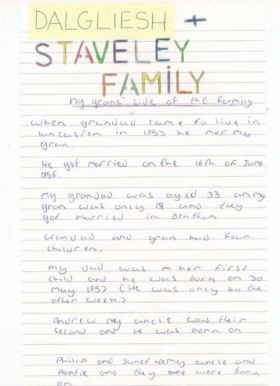 DALGLIESH +
STAVELEY
FAMILY
My grans side of the family
When grandad came to live in
in 1953 he met my
gran.
He got married on the 16th of June
1956.
My grandad was aged 33 and my
gran was only 18 and they
got married in
Grandad and gran had four
children.
My dad was their first
child and he was born on 30
May 1957 (He was only
other week)
Andrew my uncle was their
second one he was born on
Philip and Nancy uncle and
Auntie and they were born
on